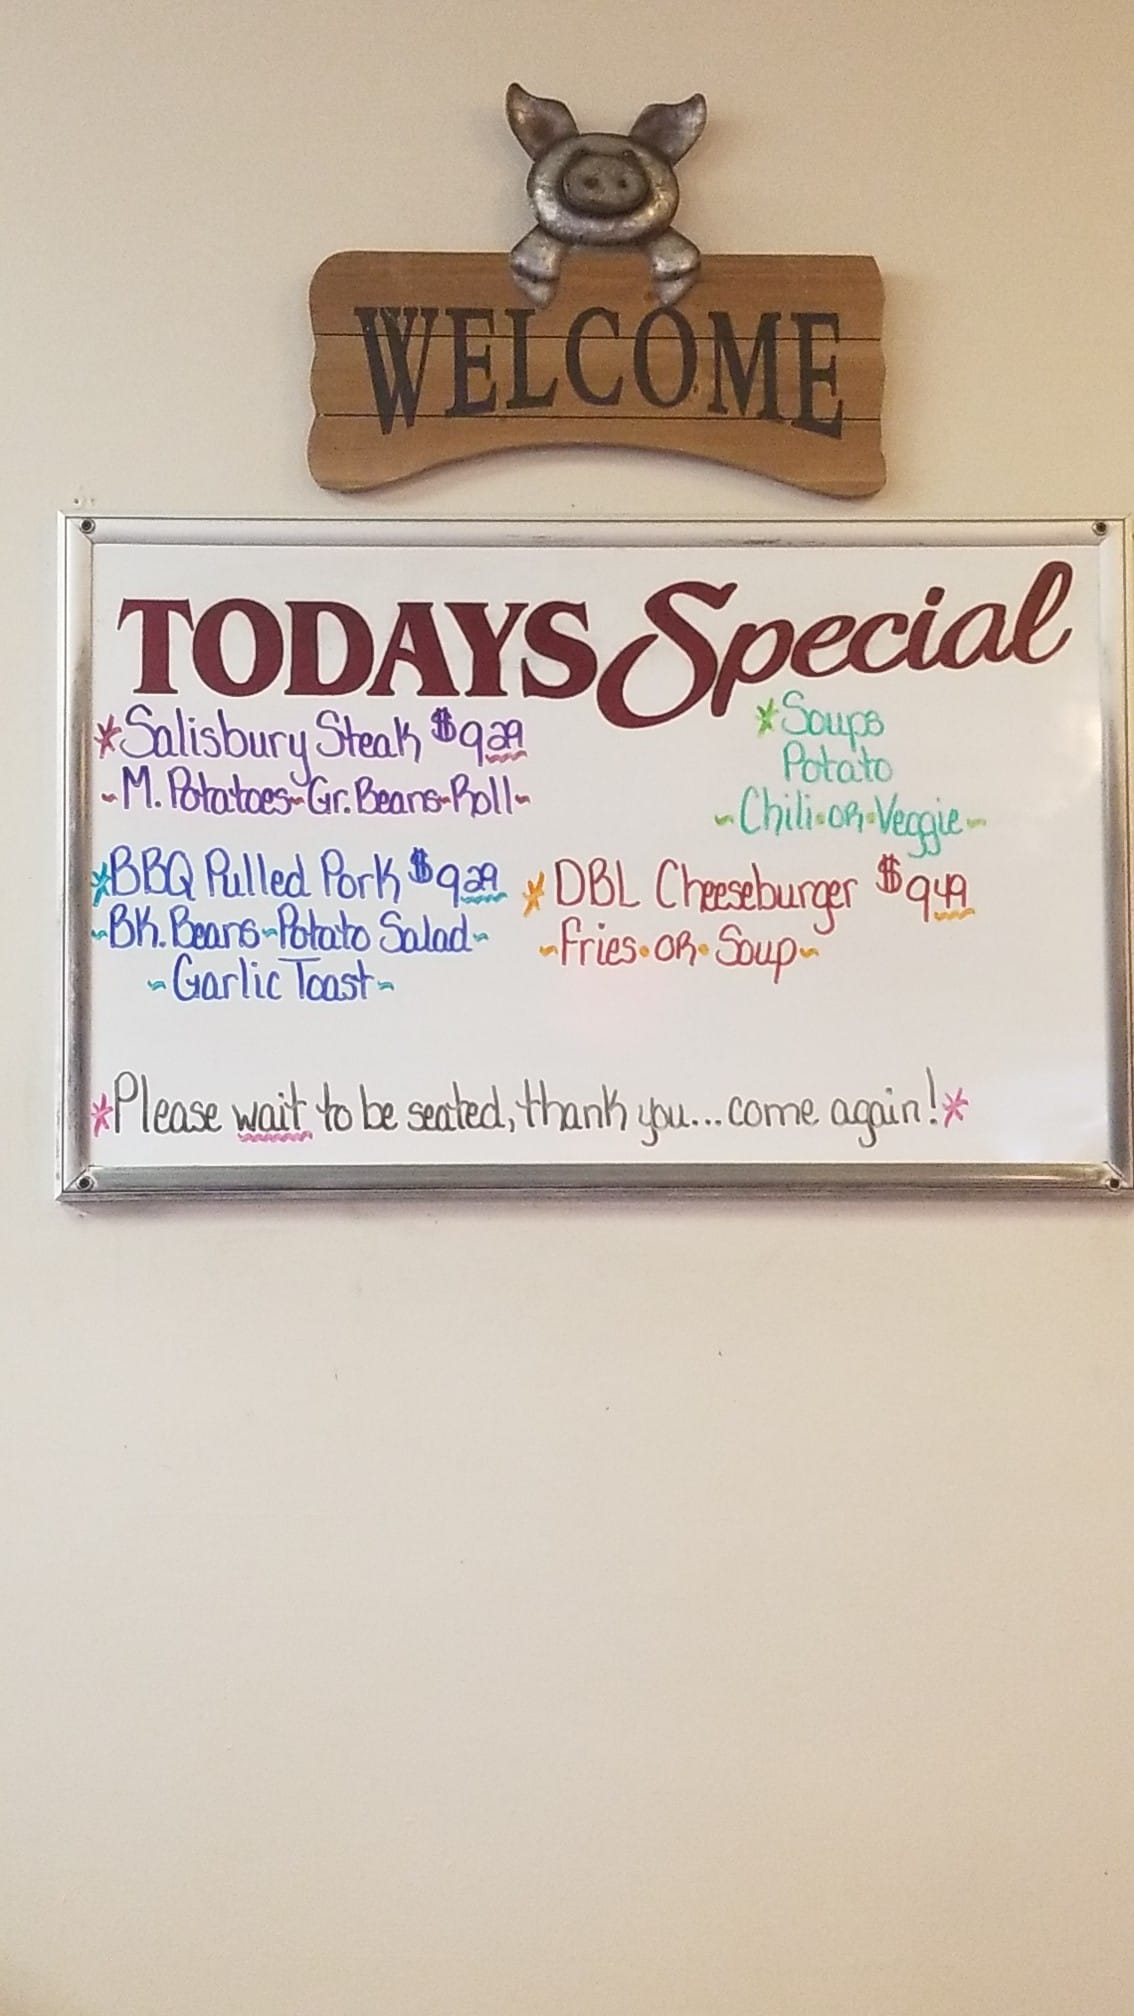 WELCOME
TODAYS Special
*Salisbury Steak $9.29
~M. Potatoes~Gr. Beans~Roll~
*BBQ Pulled Pork $9.29
~BK. Beans~Potato Salad~
~Garlic Toast~
*Soups
Potato
~Chili•OR•Veggie~
*DBL Cheeseburger $9.49
~Fries•OR•Soup~
*Please wait to be seated, thank you...come again!*